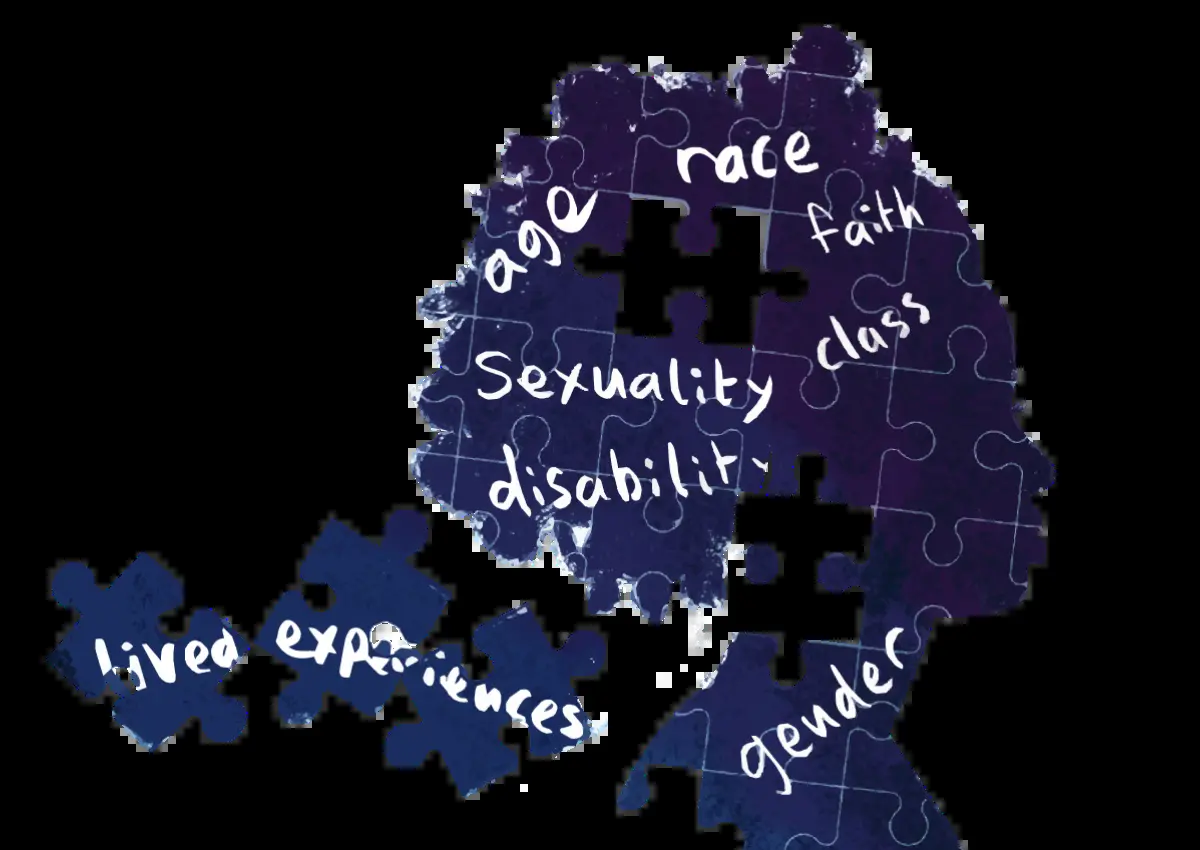 race
age
faith
class
Sexuality
disability
lived experiences
gender